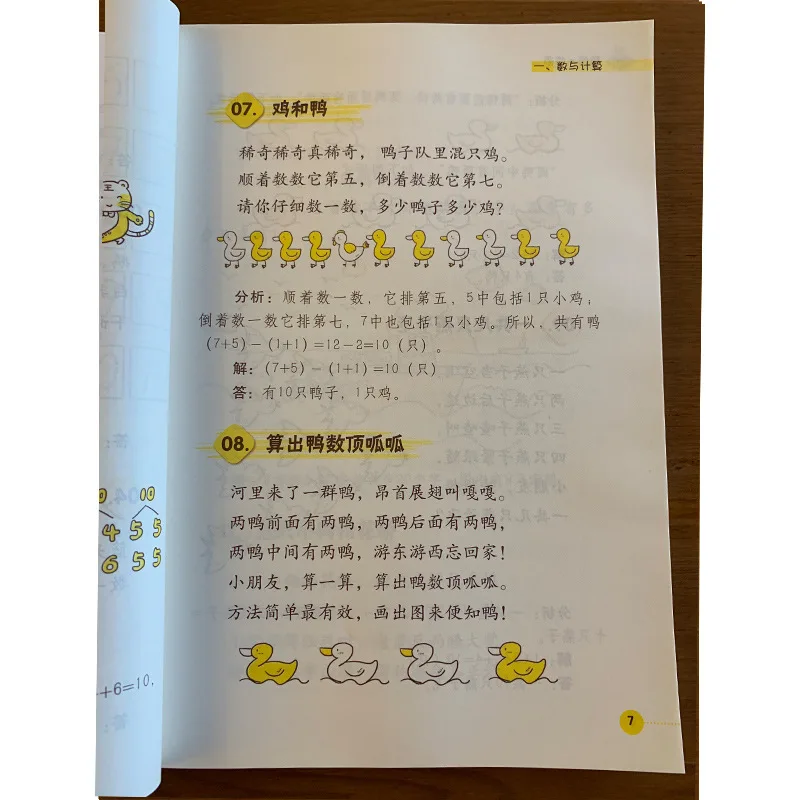 一、数与计算
07. 鸡和鸭
稀奇稀奇真稀奇，鸭子队里混只鸡。
顺着数数它第五，倒着数数它第七。
请你仔细数一数，多少鸭子多少鸡？
分析：顺着数一数，它排第五，5中包括1只小鸡；
倒着数一数它排第七，7中也包括1只小鸡。所以，共有鸭
（7+5）－（1+1）=12－2=10（只）。
解：（7+5）－（1+1）=10（只）
答：有10只鸭子，1只鸡。
08. 算出鸭数顶呱呱
河里来了一群鸭，昂首展翅叫嘎嘎。
两鸭前面有两鸭，两鸭后面有两鸭，
两鸭中间有两鸭，游东游西忘回家！
小朋友，算一算，算出鸭数顶呱呱。
方法简单最有效，画出图来便知鸭！
7
王
10
4 5 5
6 5 5
+6=10.